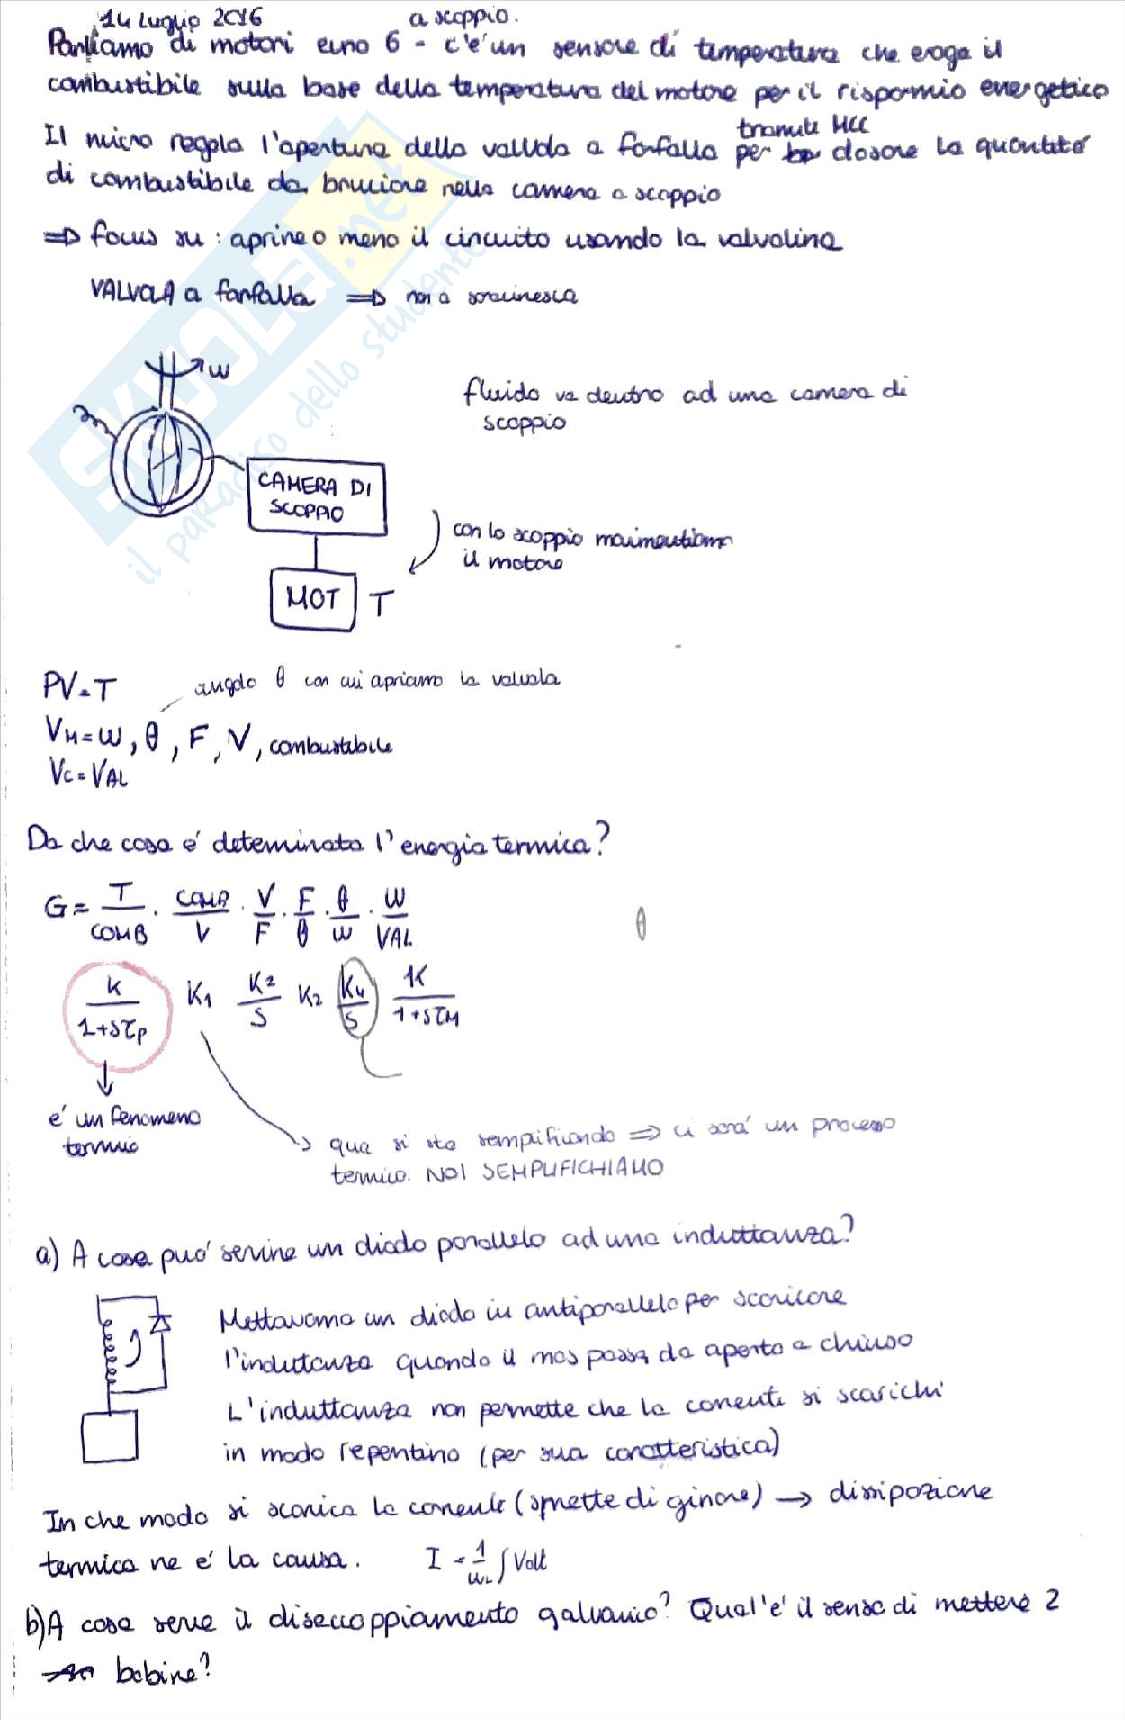 14 Luglio 2016
a scoppio.
Parliamo di motori euro 6 - c'e' un sensore di temperatura che eroga il
combustibile sulla base della temperatura del motore per il risparmio energetico
tramite MCC
Il micro regola l'apertura della valvola a farfalla per dosare la quantità
di combustibile da bruciare nella camera a scoppio
⇒ focus su : aprire o meno il circuito usando la valvolina
VALVOLA a farfalla ⇒ non a saracinesca
w
fluido va dentro ad una camera di
scoppio
CAMERA DI
SCOPPIO
con lo scoppio movimentiamo
il motore
MOT T
PV=T
angolo θ con cui apriamo la valvola
VM=w, θ, F, V, combustibile
VC=VAL
Da che cosa e' deteminata l'energia termica?
G= T/COMB · COMB/V · V/F · F/θ · θ/w · w/VAL
θ
k/1+sτp K1 K2/s K2 K4/s K/1+sτM
e' un fenomeno
termico
qua si sta sempificando ⇒ ci sarà un processo
termico. NOI SEMPLIFICHIAMO
a) A cosa puo' servire un diodo parallelo ad una induttanza?
Mettavamo un diodo in antiparallelo per scaricare
l'induttanza quando il mos passa da aperto a chiuso
L'induttanza non permette che la corrente si scarichi
in modo repentino (per sua caratteristica)
In che modo si scarica la corrente (smette di girare) → dissipazione
termica ne e' la causa. I = 1/wL ∫ Volt
b) A cosa serve il disaccoppiamento galvanico? Qual'e' il senso di mettere 2
bobine?
SKUOLA.net
il paradiso dello studente